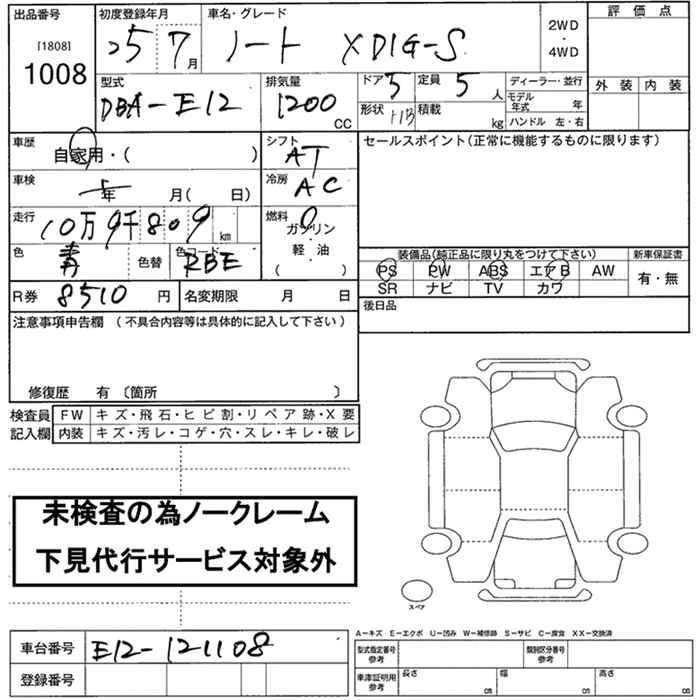 出品番号 初度登録年月 車名・グレード 2WD ・ 4WD 評価点
[1808] 1008 25 7月 ノート X DIG-S
外装 内装
型式 DBA-E12 排気量 1200 CC ドア 5 定員 5人 ディーラー・並行
形状 H/B 積載 kg モデル年式 年
ハンドル 左・右
車歴 自家用・( ) シフト AT セールスポイント(正常に機能するものに限ります)
車検 年 月( 日) 冷房 AC
走行 10万9千809 km 燃料 ガソリン ・ 軽・油 ( )
色 青 色替 色コード RBE
装備品(純正品に限り丸をつけて下さい) 新車保証書
PS PW ABS エアB AW 有・無
SR ナビ TV カワ
R券 8510円 名変期限 月 日 後日品
注意事項申告欄 (不具合内容等は具体的に記入して下さい)
修復歴 有 〔箇所 〕
検査員 FW キズ・飛石・ヒビ割・リペア跡・X要
記入欄 内装 キズ・汚レ・コゲ・穴・スレ・キレ・破レ
未検査の為ノークレーム
下見代行サービス対象外
スペア
A-キズ E-エクボ U-凹み W-補修跡 S-サビ C-腐食 XX-交換済
車台番号 E12-121108
登録番号
型式指定番号 参考 類別区分番号 参考
車庫証明用 参考 長さ cm 幅 cm 高さ cm